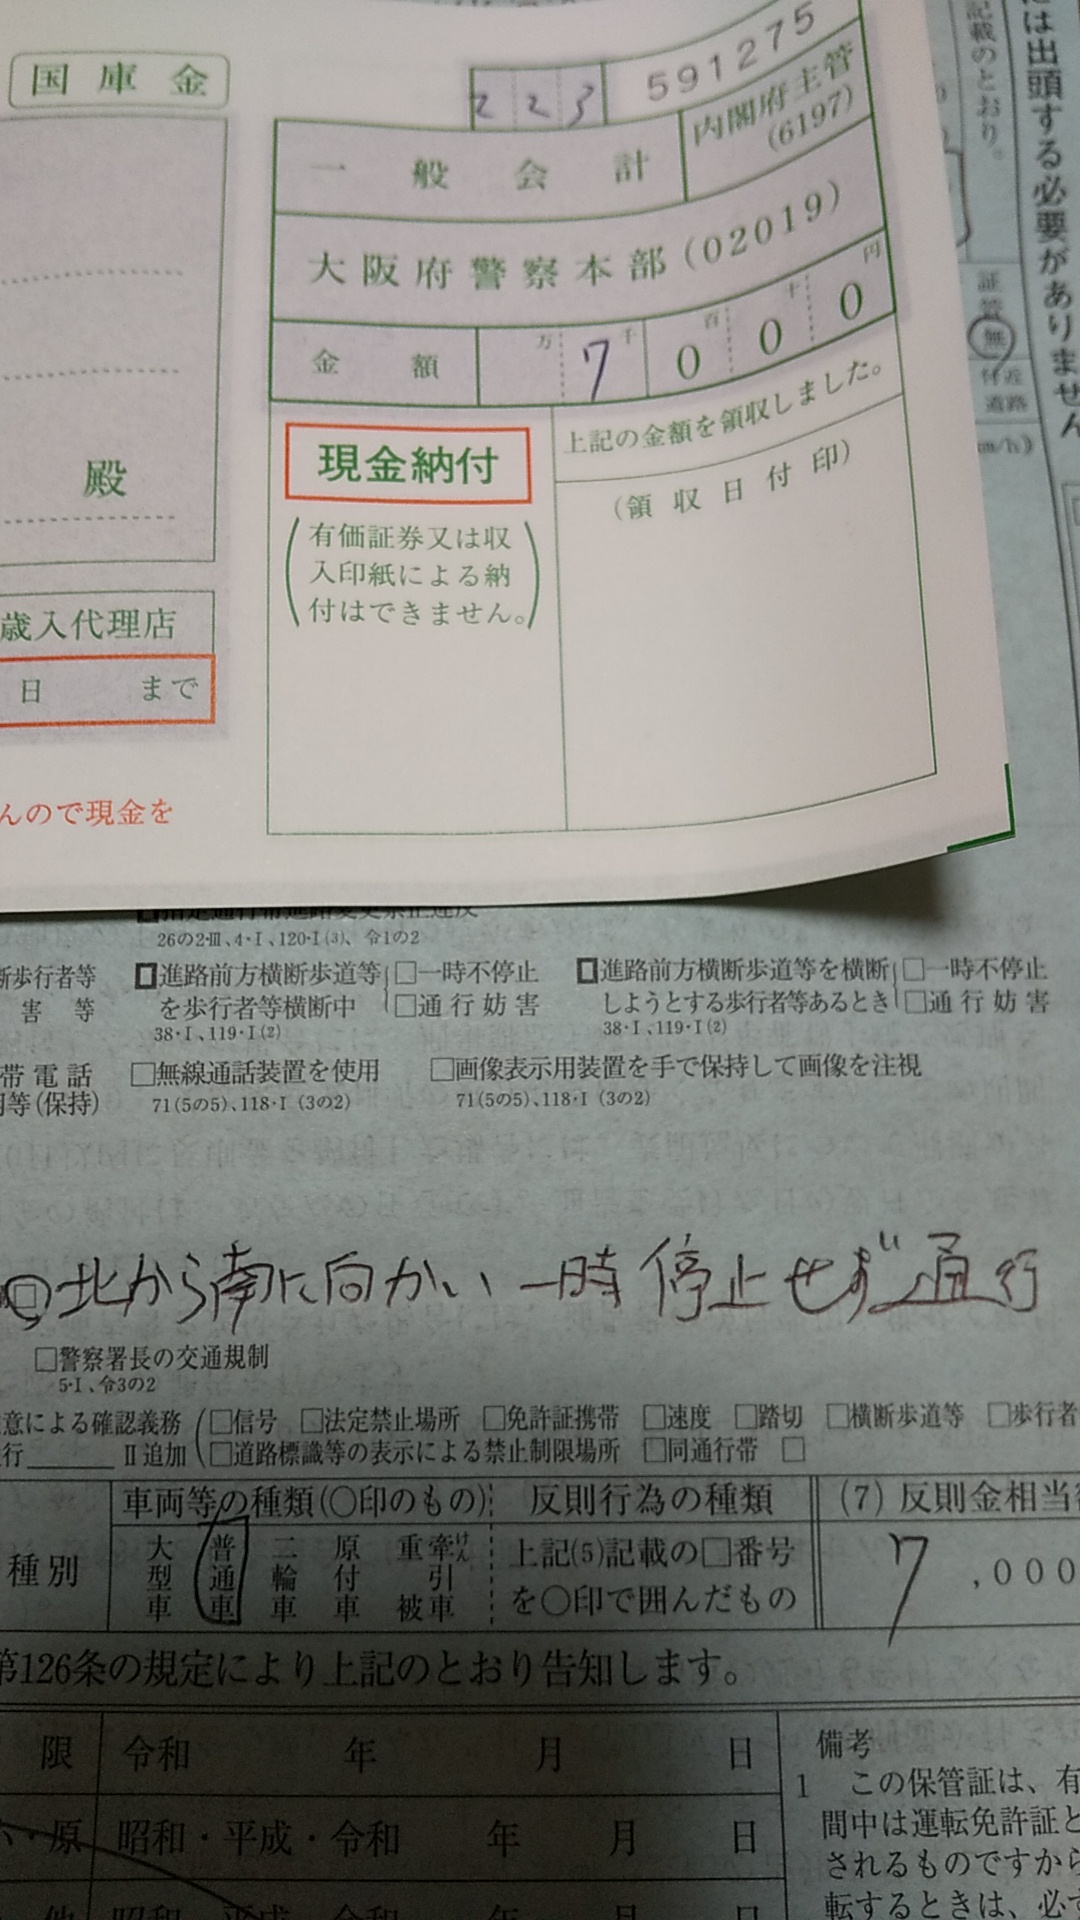 国庫金
223
591275
一般会計
内閣府主管
(6197)
大阪府警察本部(02019)
金額
万 千 百 十 円
7 0 0 0
現金納付
(有価証券又は収
入印紙による納
付はできません。)
上記の金額を領収しました。
(領収日付印)
殿
歳入代理店
日 まで
んので現金を
は出頭する必要がありません
記載のとおり。
無
付近
道路
km/h)
26の2·Ⅲ、4·Ⅰ、120·Ⅰ(3)、令1の2
断歩行者等
害等
□進路前方横断歩道等
を歩行者等横断中
38·Ⅰ、119·Ⅰ(2)
□一時不停止
□通行妨害
□進路前方横断歩道等を横断
しようとする歩行者等あるとき
38·Ⅰ、119·Ⅰ(2)
□一時不停止
□通行妨害
帯電話
用等(保持)
□無線通話装置を使用
71(5の5)、118·Ⅰ(3の2)
□画像表示用装置を手で保持して画像を注視
71(5の5)、118·Ⅰ(3の2)
北から南に向かい一時停止せず通行
□警察署長の交通規制
5·Ⅰ、令3の2
意による確認義務
行 Ⅱ追加
(□信号 □法定禁止場所 □免許証携帯 □速度 □踏切 □横断歩道等 □歩行者
□道路標識等の表示による禁止制限場所 □同通行帯 □
種別
車両等の種類(○印のもの)
大型車
普通車
二輪車
原付車
重被牽引車
けん
反則行為の種類
上記(5)記載の□番号
を○印で囲んだもの
(7) 反則金相当
7,000
第126条の規定により上記のとおり告知します。
限 令和 年 月 日
・原 昭和・平成・令和 年 月 日
他 昭和・平成・令和 年 月 日
備考
1 この保管証は、有
間中は運転免許証と
されるものですから
転するときは、必ず